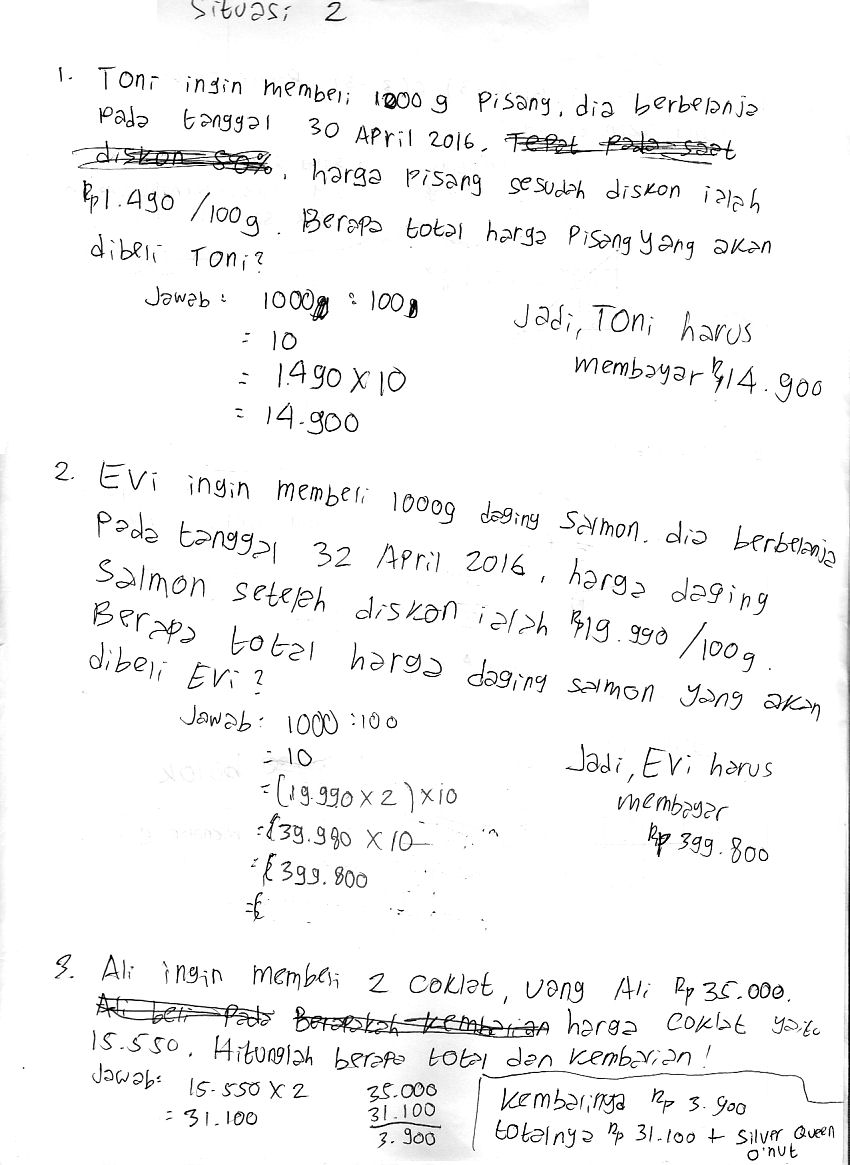 Situasi 2
1. Toni ingin membeli 1000 g Pisang, dia berbelanja
Pada tanggal 30 April 2016. Tepat pada saat
diskon 50%, harga pisang sesudah diskon ialah
Rp1.490 /100g. Berapa total harga Pisang yang akan
dibeli Toni?
Jawab : 1000g : 100g
= 10
= 1.490 X 10
= 14.900
Jadi, Toni harus
membayar Rp14.900
2. Evi ingin membeli 1000g daging salmon. dia berbelanja
Pada tanggal 32 April 2016, harga daging
Salmon setelah diskon ialah Rp19.990 /100g.
Berapa total harga daging salmon yang akan
dibeli Evi?
Jawab : 1000 : 100
= 10
= (19.990 X 2) X 10
= (39.980 X 10
= ( 399.800
= (
Jadi, Evi harus
membayar
Rp 399.800
3. Ali ingin membeli 2 Coklat, uang Ali Rp 35.000.
Ali beli Pada Berapakah kembarian harga Coklat yaitu
15.550. Hitunglah berapa total dan kembarian!
Jawab: 15.550 X 2
= 31.100
35.000
31.100
3.900
Kembarinya Rp 3.900
totalnya Rp 31.100 + Silver Queen
O'nut